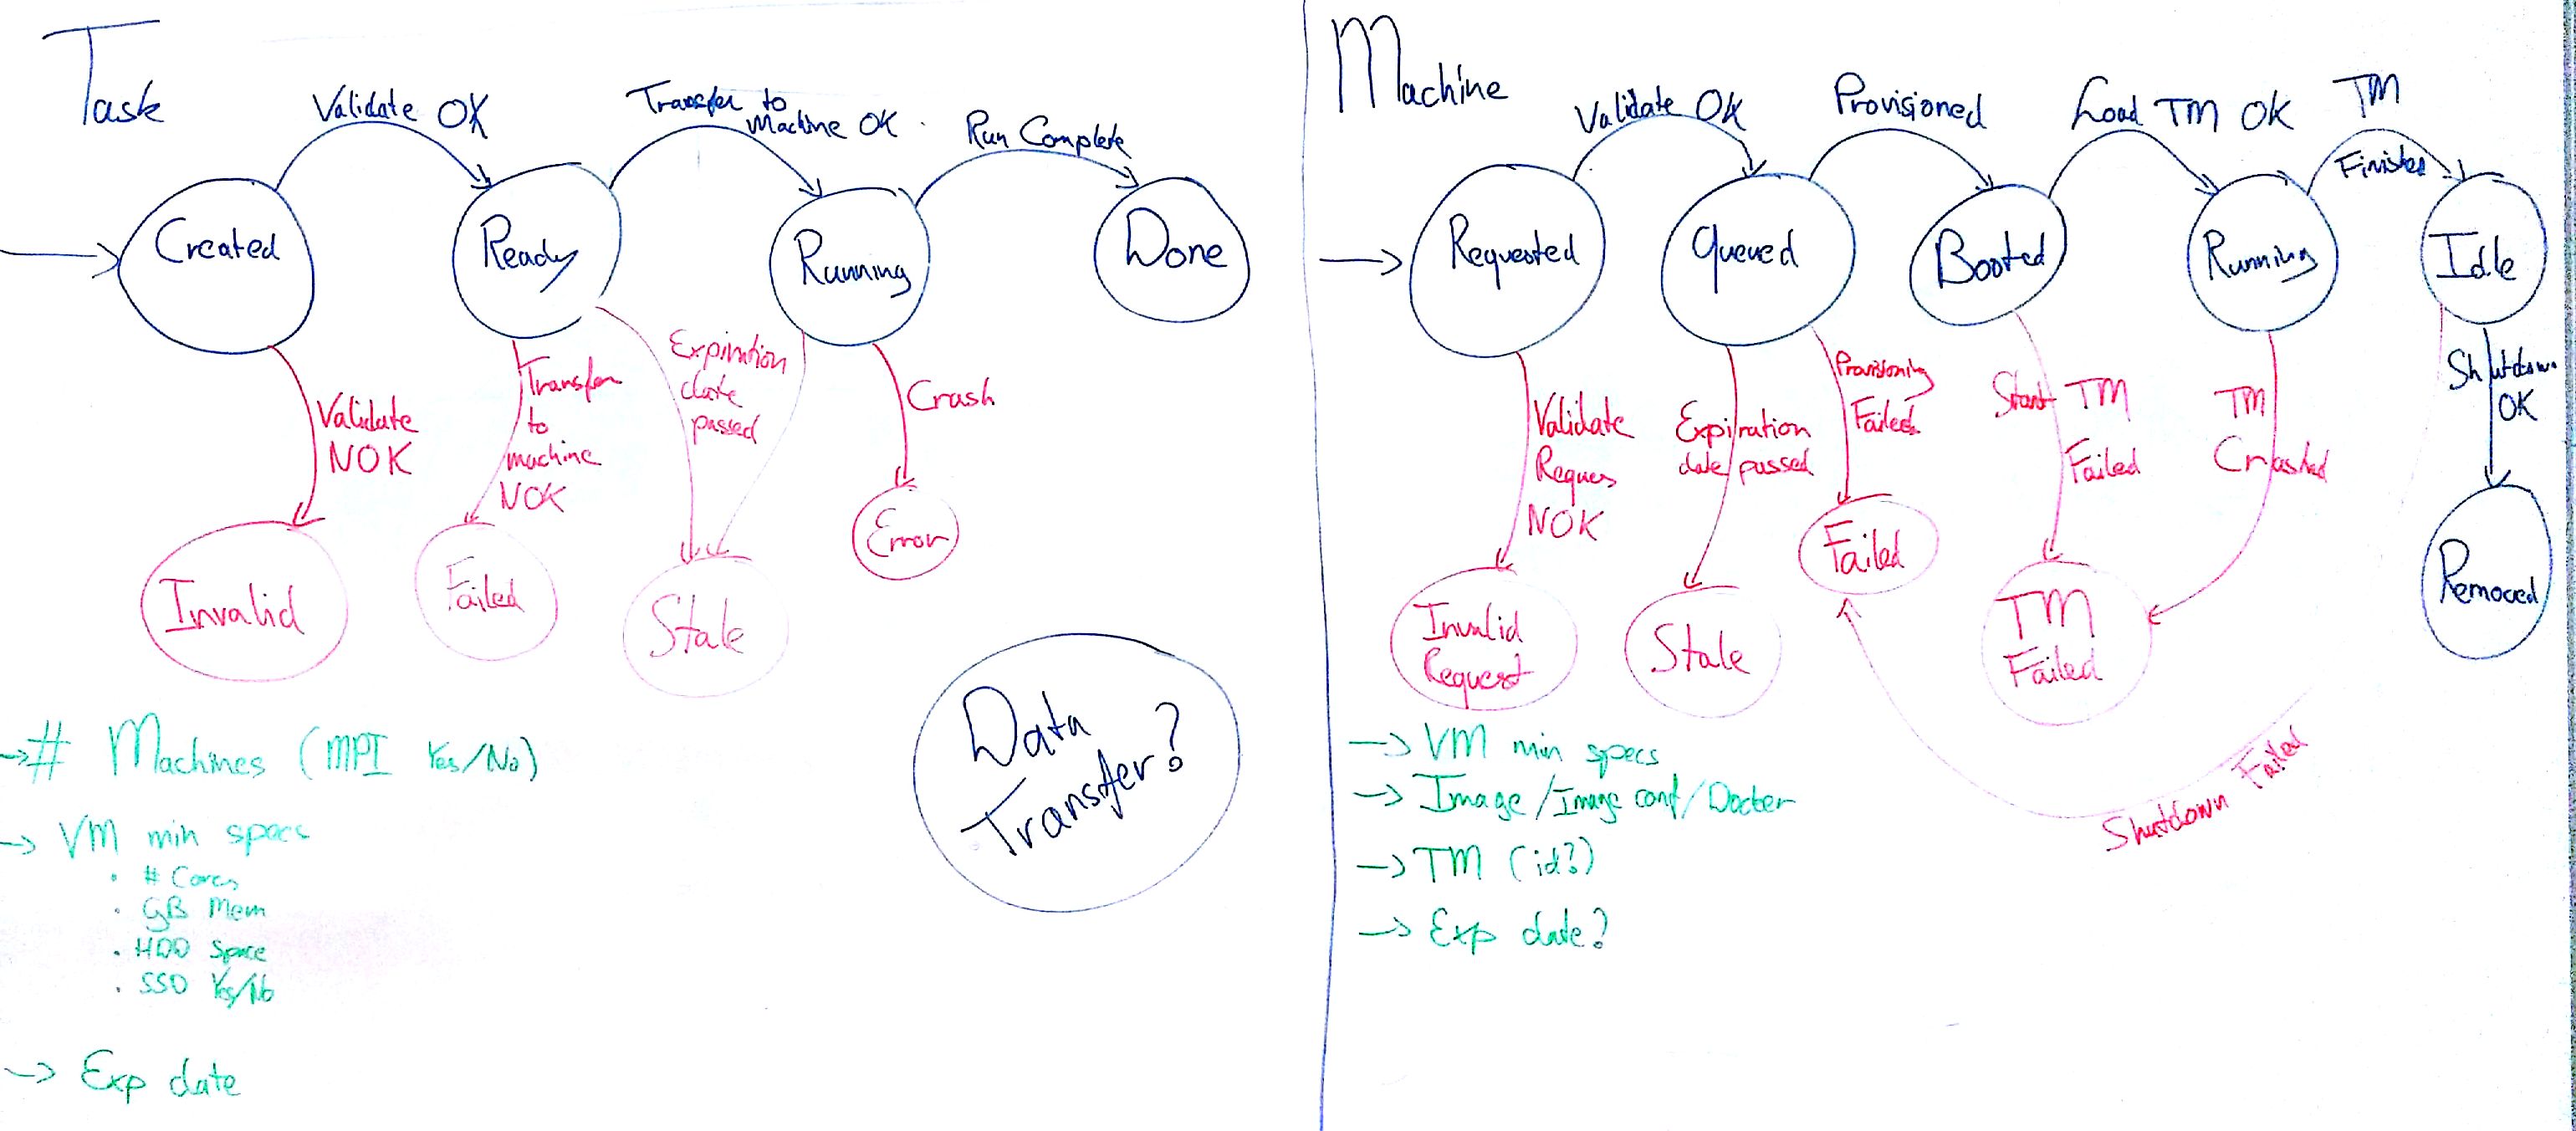 Task
Validate OK
Transfer to
Machine OK
Run Complete
Created
Ready
Running
Done
Validate
NOK
Transfer
to
machine
NOK
Expiration
date
passed
Crash
Invalid
Failed
Stale
Error
Data
Transfer?
→ # Machines (MPI Yes/No)
→ VM min specs
· # Cores
· GB Mem
· HDD Space
· SSD Yes/No
→ Exp date
Machine
Validate OK
Provisioned
Load TM OK
TM
Finished
Requested
Queued
Booted
Running
Idle
Validate
Reques
NOK
Expiration
date passed
Provisioning
Failed
Start TM
Failed
TM
Crashed
Shutdown
OK
Invalid
Request
Stale
Failed
TM
Failed
Removed
Shutdown Failed
→ VM min specs
→ Image/Image conf/Docker
→ TM (id?)
→ Exp date?